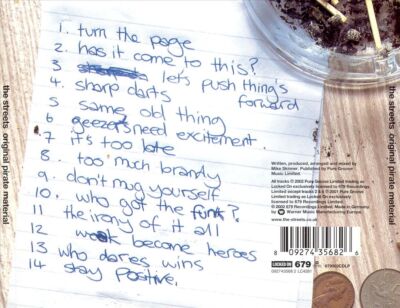 the streets original pirate material
1. turn the page
2. has it come to this?
3. let's push thing's
forward
4. sharp darts
5. same old thing
6. geezers need excitement
7. it's too late
8. too much brandy
9. don't mug yourself
10. who got the funk?
11. the irony of it all
12 weak become heroes
13 who dares wins
14 stay positive.
the streets original pirate material
Written, produced, arranged and mixed by
Mike Skinner. Published by Pure Groove
Music Limited.
All tracks © 2002 Pure Groove Limited trading as
Locked On exclusively licensed to 679 Recordings
Limited except tracks 2 & © 2001 Pure Groove
Limited trading as Locked On exclusively
licensed to 679 Recordings Limited.
© 2002 679 Recordings Limited. Made in the EU.
Warner Music Manufacturing Europe.
www.the-streets.co.uk
8 09274 35682 6
LOCKED ON 679